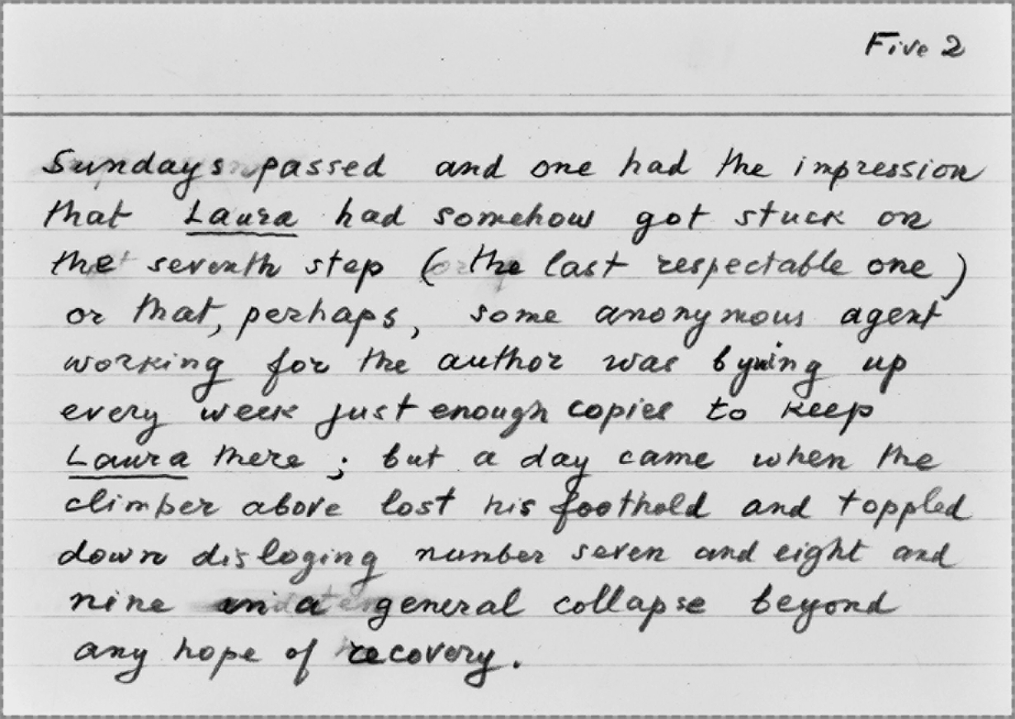 Five 2
Sundays passed and one had the impression
that Laura had somehow got stuck on
the seventh step (the last respectable one)
or that, perhaps, some anonymous agent
working for the author was bying up
every week just enough copies to keep
Laura there; but a day came when the
climber above lost his foothold and toppled
down disloging number seven and eight and
nine in a general collapse beyond
any hope of recovery.